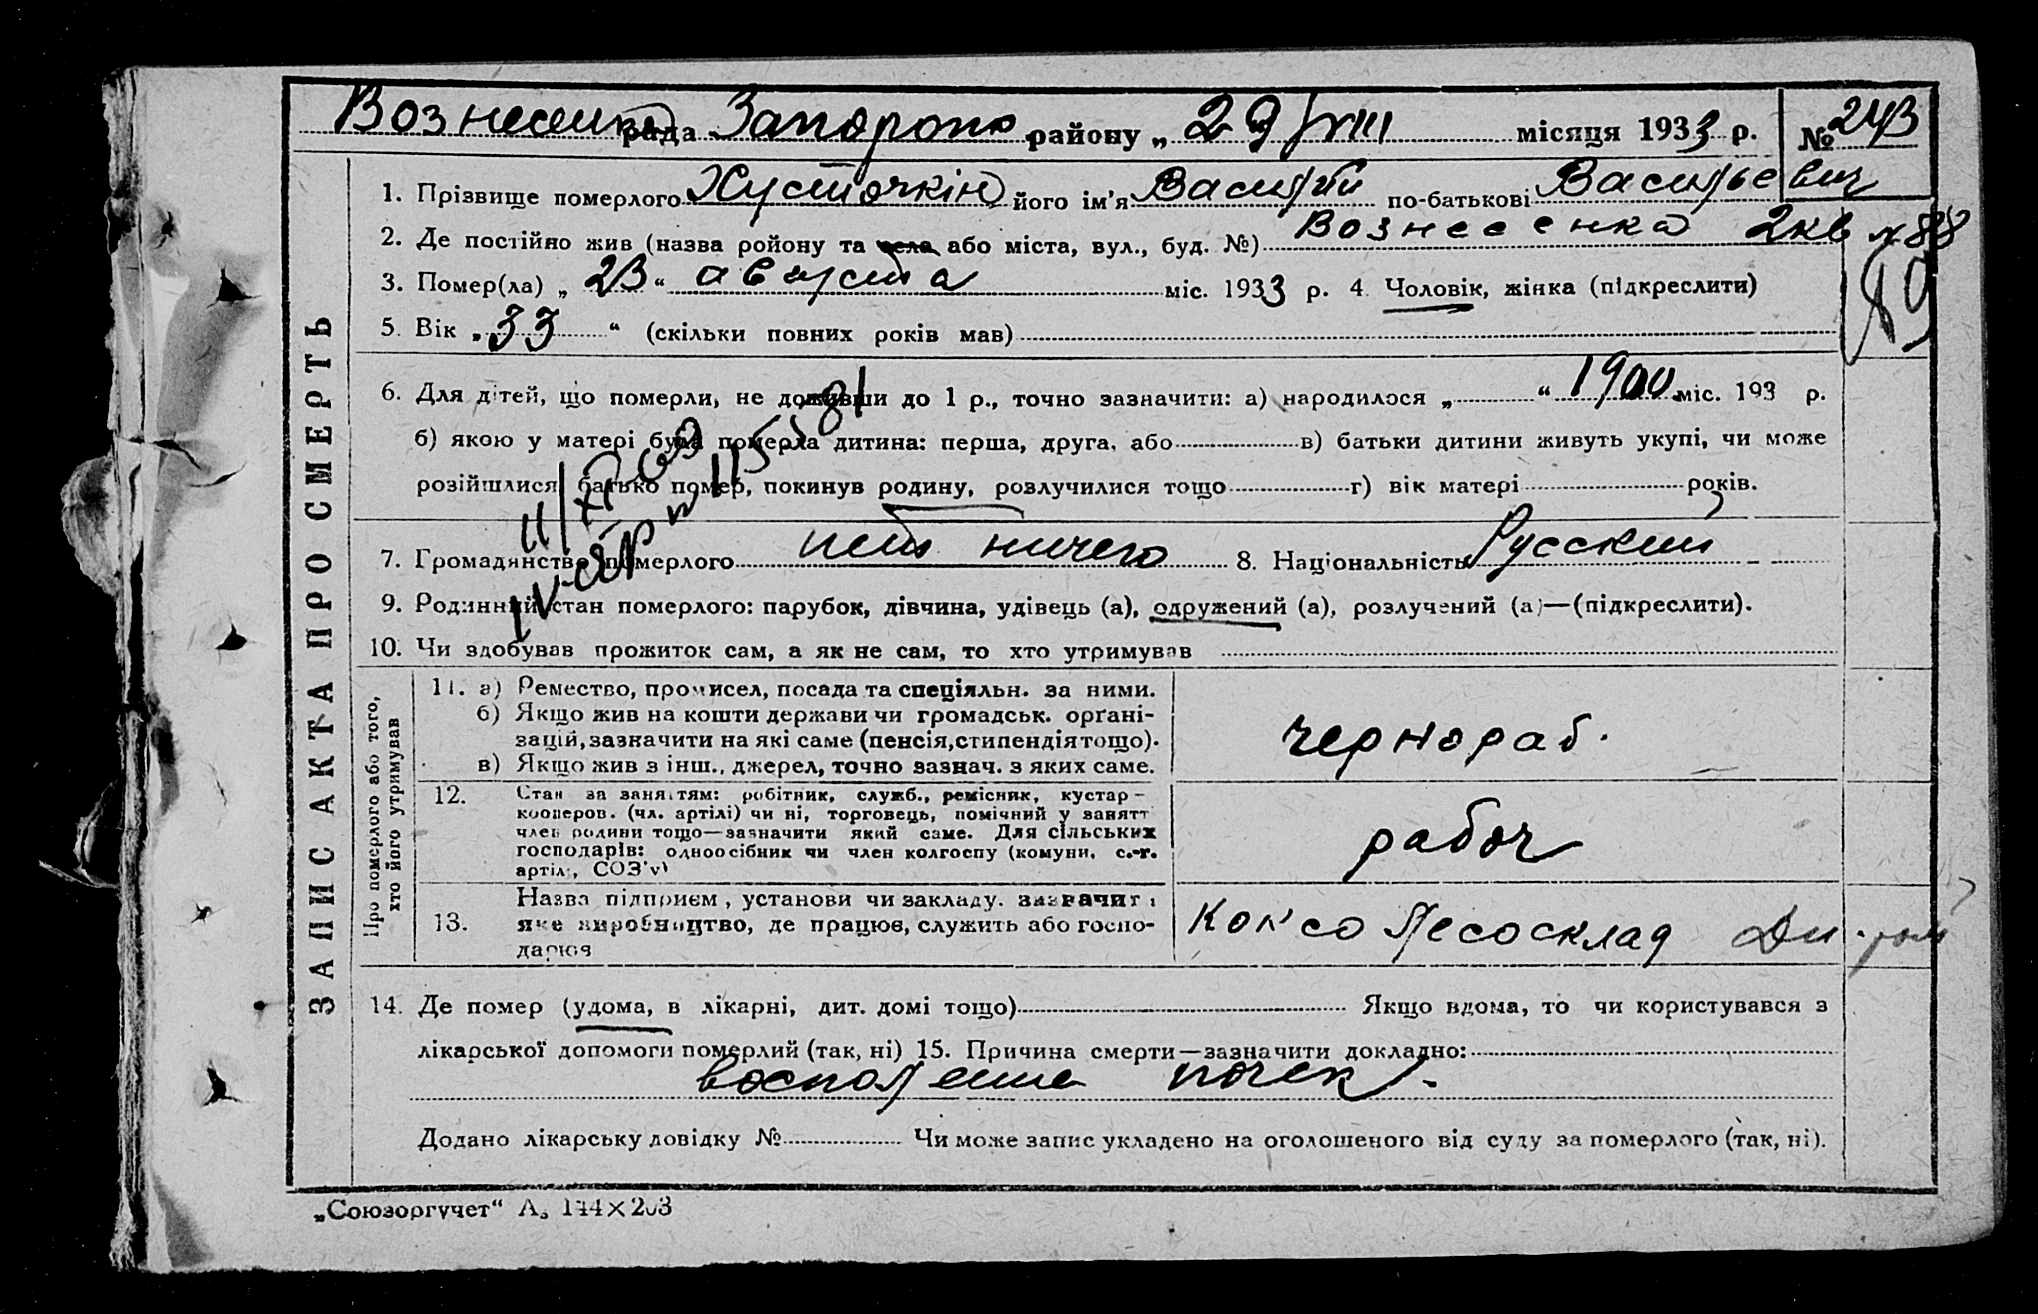 Вознесенка рада Запорож району „ 29/VIII місяця 1933 р. № 243
1. Прізвище померлого Хусточкін його ім'я Василий по-батькові Васильевич
2. Де постійно жив (назва ройону та села або міста, вул., буд. №) Вознесенка 2кв №88
3. Помер(ла) „ 23 “ августа міс. 1933 р. 4. Чоловік, жінка (підкреслити)
5. Вік „ 33 “ (скільки повних років мав)
6. Для дітей, що померли, не доживши до 1 р., точно зазначити: а) народилося „ “ 1900 міс. 193 р.
б) якою у матері була померла дитина: перша, друга, або в) батьки дитини живуть укупі, чи може
розійшлися, батько помер, покинув родину, розлучилися тощо г) вік матері років.
7. Громадянство померлого нет ничего 8. Національність Русский
9. Родинний стан померлого: парубок, дівчина, удівець (а), одружений (а), розлучений (а)—(підкреслити).
10. Чи здобував прожиток сам, а як не сам, то хто утримував
ЗАПИС АКТА ПРО СМЕРТЬ
Про померлого або того,
хто його утримував
11. а) Ремество, промисел, посада та спеціяльн. за ними.
б) Якщо жив на кошти держави чи громадськ. орґані-
зацій, зазначити на які саме (пенсія, стипендія тощо).
в) Якщо жив з інш., джерел, точно зазнач. з яких саме.
чернораб.
12. Стан за заняттям: робітник, служб., ремісник, кустар-
кооперов. (чл. артілі) чи ні, торговець, помічний у занятт
член родини тощо—зазначити який саме. Для сільських
господарів: одноосібник чи член колгоспу (комуни, с.-г.
артілі, СОЗ'у)
рабоч
13. Назва підприєм, установи чи закладу. зазначити
яке виробництво, де працює, служить або госпо-
дарює
Коксо Лесосклад
14. Де помер (удома, в лікарні, дит. домі тощо) Якщо вдома, то чи користувався з
лікарської допомоги померлий (так, ні) 15. Причина смерти—зазначити докладно:
воспаление почек.
Додано лікарську довідку № Чи може запис укладено на оголошеного від суду за померлого (так, ні).
„Союзоргучет“ А₅ 144×203